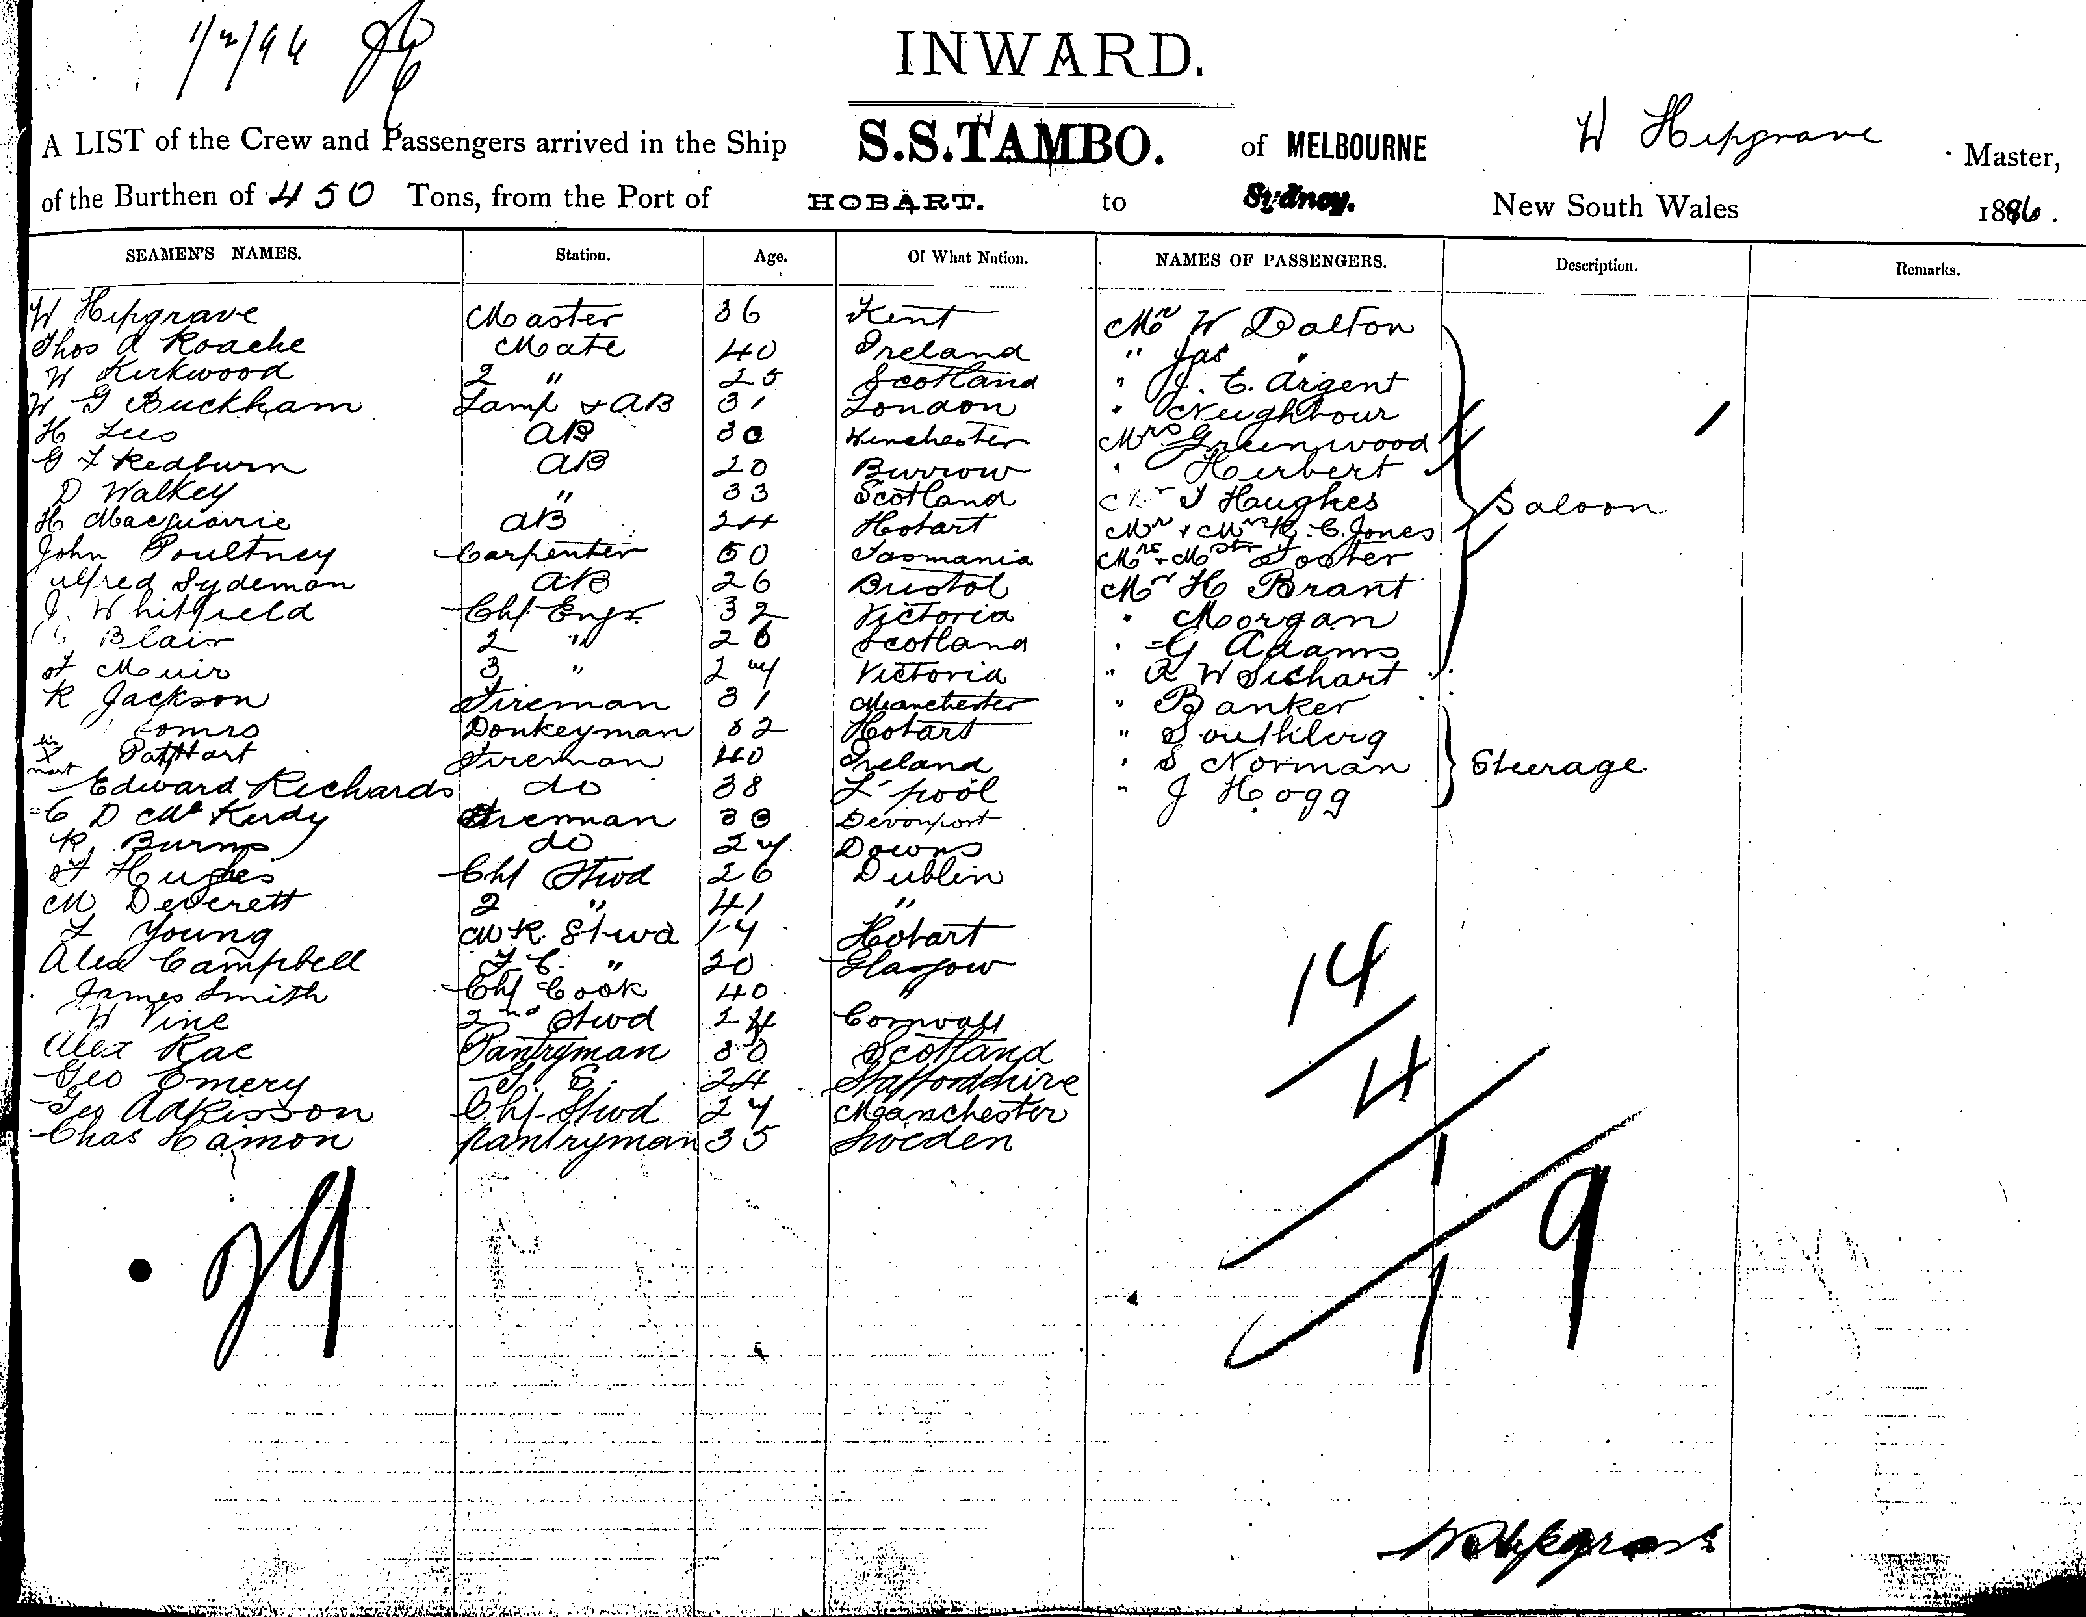 1/2/96
INWARD.
A LIST of the Crew and Passengers arrived in the Ship S.S. TAMBO. of MELBOURNE W Hipgrave Master,
of the Burthen of 450 Tons, from the Port of HOBART. to Sydney. New South Wales 1896.
SEAMEN'S NAMES. Station. Age. Of What Nation. NAMES OF PASSENGERS. Description. Remarks.
W Hipgrave Master 36 Kent Mr W Dalton
Thos A Roache Mate 40 Ireland " Jas "
W Kirkwood 2 " 25 Scotland " J. E. Argent
W G Buckham Lamp & AB 31 London " Neighbour
H Lees AB 30 Winchester Mrs Greenwood
G F Redburn AB 20 Burrow " Herbert
D Walkey " 33 Scotland Mr J Haughes Saloon
H Macquarrie AB 24 Hobart Mr & Mrs R. C. Jones
John Poultney Carpenter 50 Tasmania Mrs & Mstr Foster
Alfred Sydeman AB 26 Bristol Mr H Brant
J. Whitfield Chf Engr 32 Victoria " Morgan
Blair 2 " 26 Scotland " G Adams
Muir 3 " 27 Victoria " R W Sichart
R Jackson Fireman 31 Manchester " Banker
Donkeyman 32 Hobart "
his X mark Pat Hart Fireman 40 Ireland " S Norman Steerage
Edward Richards do 38 L'pool " J Hogg
C D McKerdy Fireman 38 Devonport
R Burns do 27 Downs
Hughes Chf Stwd 26 Dublin
M Deverett 2 " 41 "
F Young M R Stwd 17 Hobart
Alex Campbell F C. " 20 Glasgow
James Smith Chf Cook 40 "
W Vine 2nd Stwd 24 Cornwall
Alex Rae Pantryman 30 Scotland
Geo Emery F. S. 24 Staffordshire
Geo Adkisson Chf Stwd 27 Manchester
Chas Hamon Pantryman 35 Sweden
14
4
1
29
19
W Hipgrave